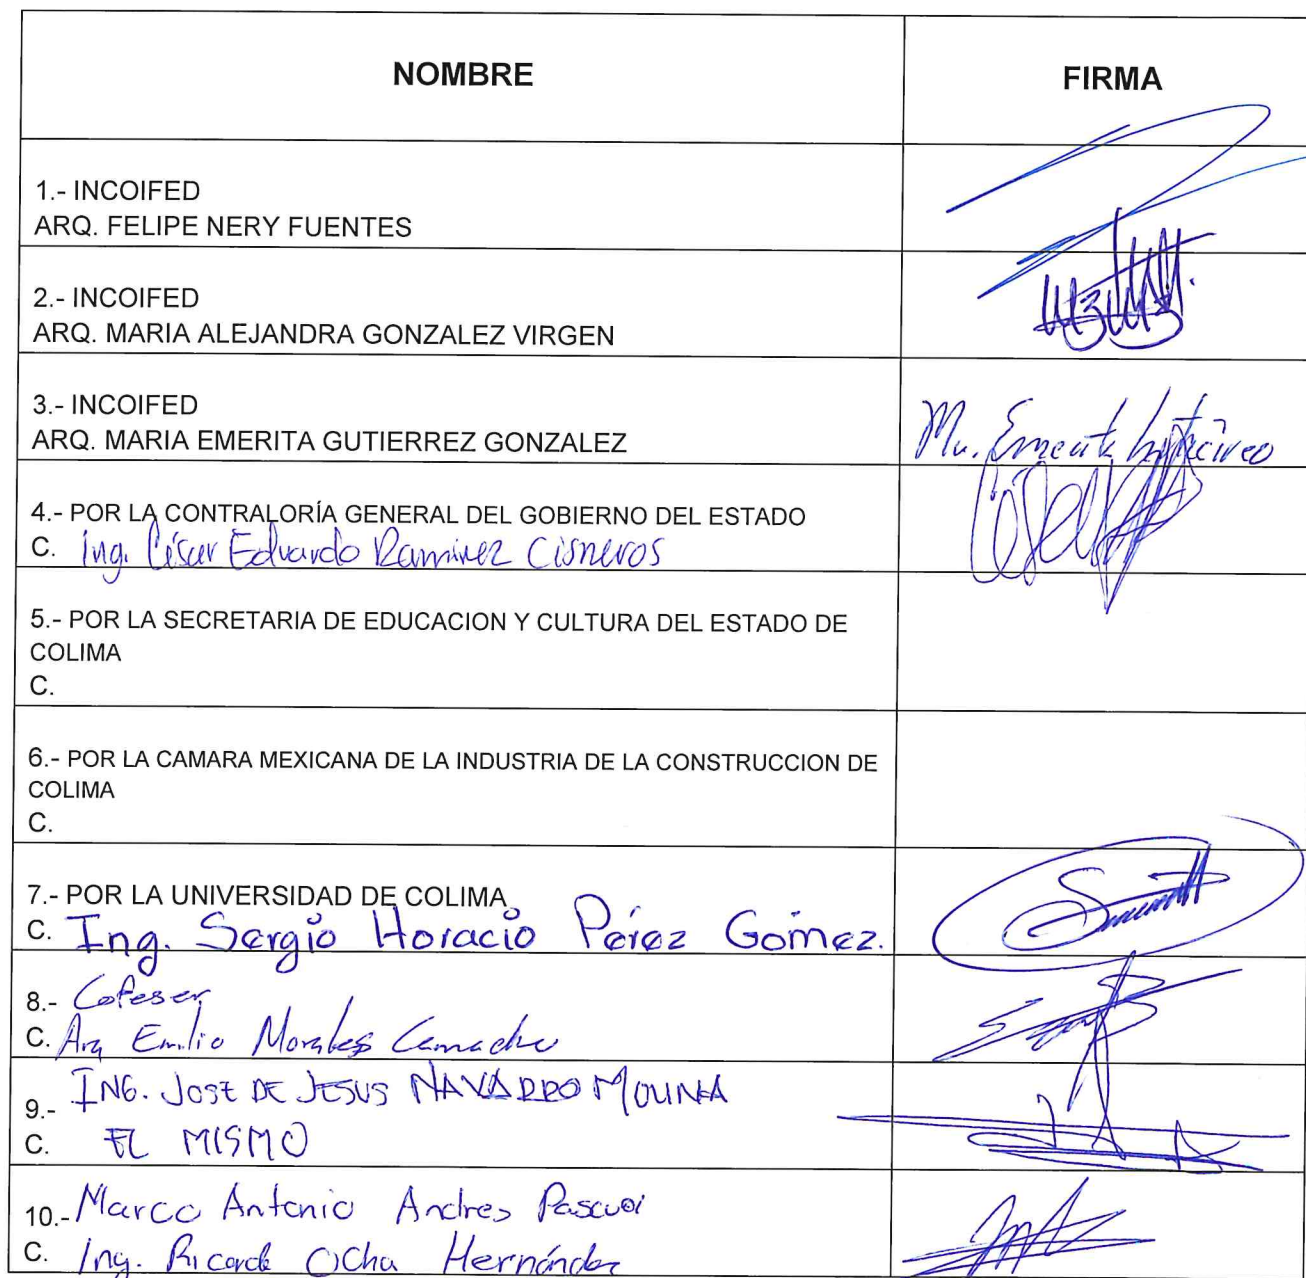 NOMBRE
FIRMA
1.- INCOIFED
ARQ. FELIPE NERY FUENTES
2.- INCOIFED
ARQ. MARIA ALEJANDRA GONZALEZ VIRGEN
3.- INCOIFED
ARQ. MARIA EMERITA GUTIERREZ GONZALEZ
4.- POR LA CONTRALORÍA GENERAL DEL GOBIERNO DEL ESTADO
C. Ing. César Eduardo Ramirez Cisneros
5.- POR LA SECRETARIA DE EDUCACION Y CULTURA DEL ESTADO DE
COLIMA
C.
6.- POR LA CAMARA MEXICANA DE LA INDUSTRIA DE LA CONSTRUCCION DE
COLIMA
C.
7.- POR LA UNIVERSIDAD DE COLIMA
C. Ing. Sergio Horacio Pérez Gómez.
8.- Copeser
C. Arq Emilio Morales Camacho
9.- ING. JOSE DE JESUS NAVARRO MOLINA
C. EL MISMO
10.- Marco Antonio Andres Pascual
C. Ing. Ricardo Ochoa Hernández